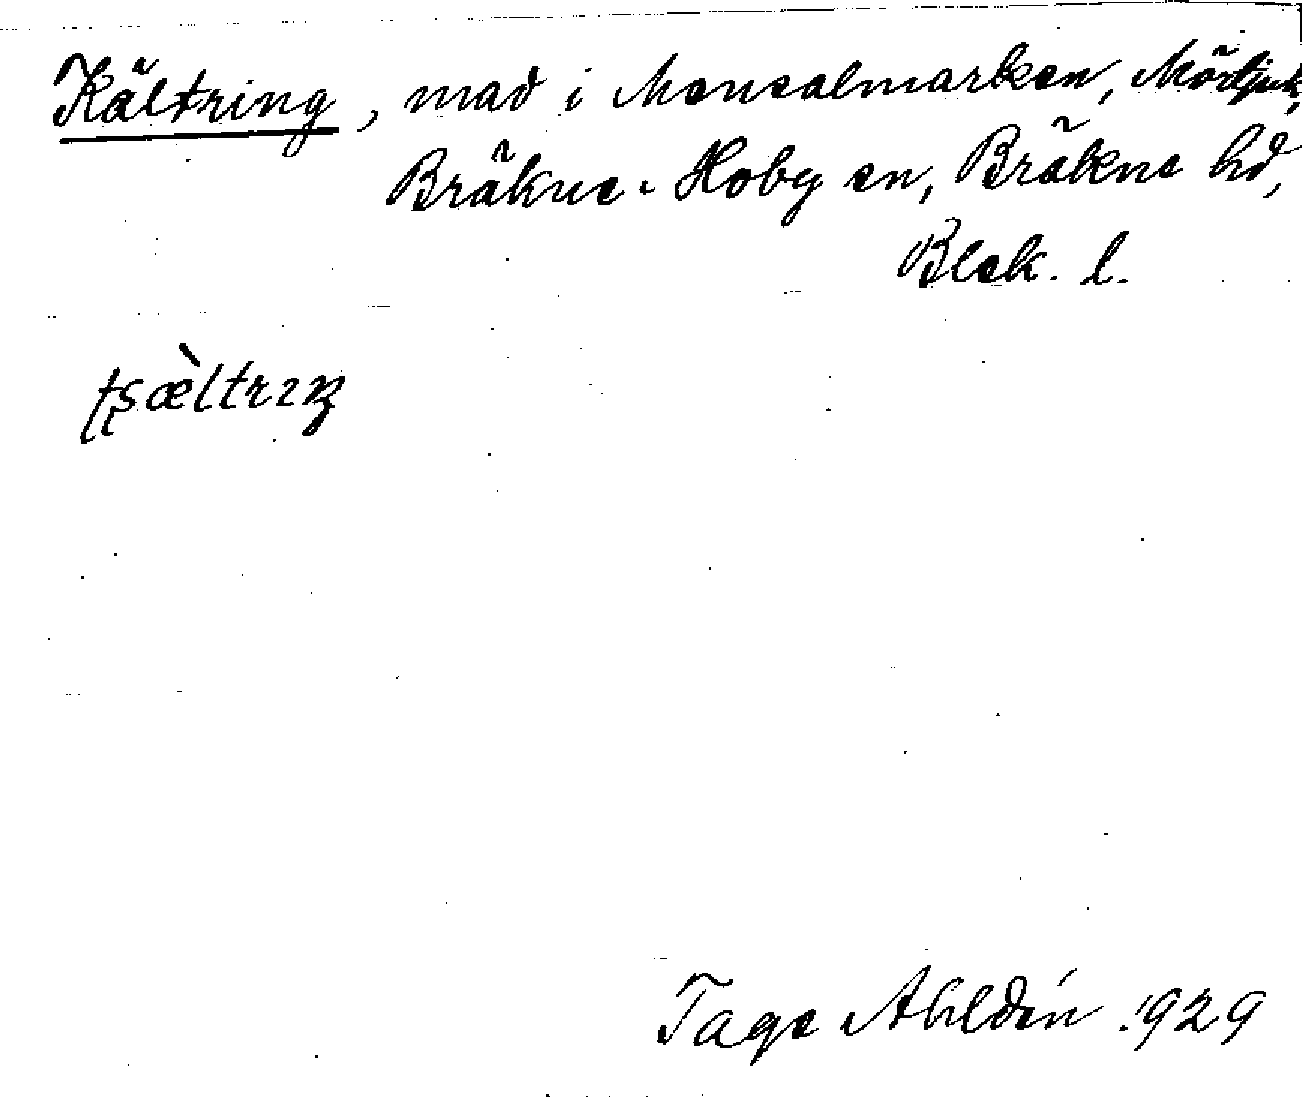 Kältring, mad i Mensalmarken, Mörtjuk,
Bräkne-Hoby sn, Bräkne hd,
Blek. l.
tʂæ̀ltrɪŋ
Tage Ahldén 1929